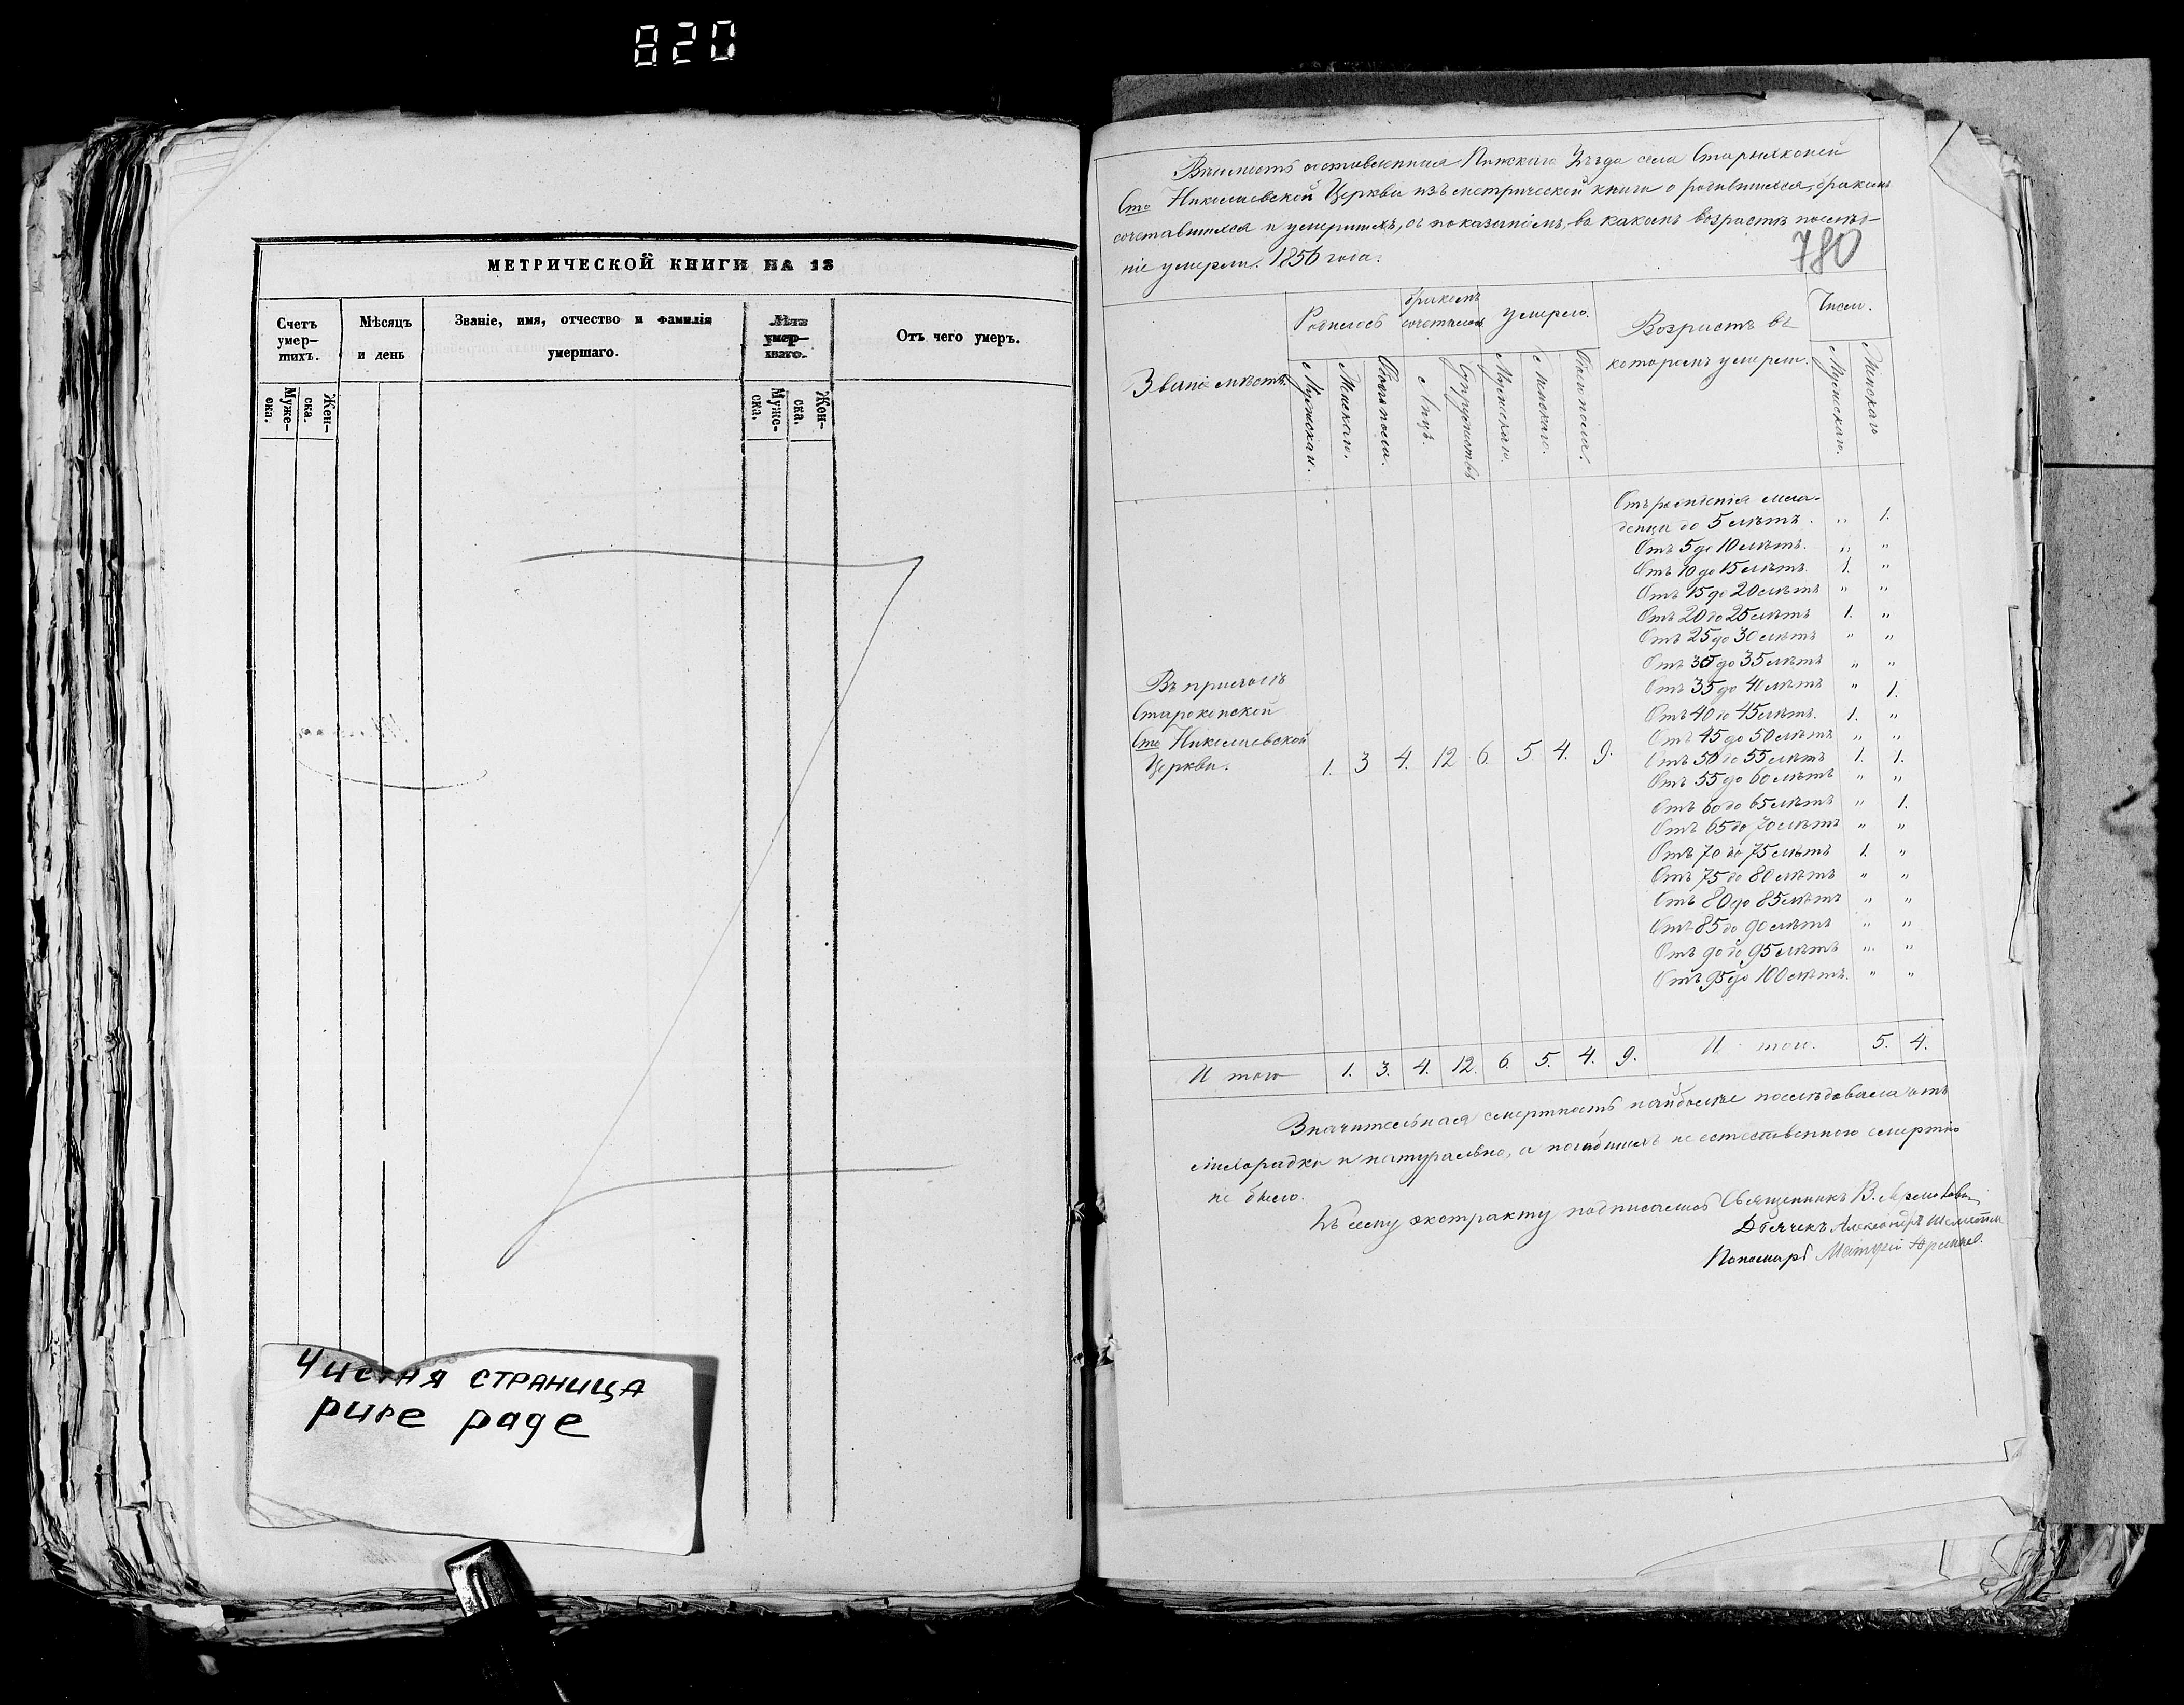 820
МЕТРИЧЕСКОЙ КНИГИ НА 18
Счетъ умер-шихъ.
Мѣсяцъ и день
Званіе, имя, отчество и фамилія умершаго.
Лѣта умер-шаго.
Отъ чего умеръ.
Муже-ска.
Жен-ска.
Муже-ска.
Жен-ска.
Чистая страница
pure page
Вѣдомость составленная Пинскаго Уѣзда села Старыхконей
Сто Николаевской Церкви изъ метрической книги о родившихся, бракомъ
сочетавшихся и умершихъ, съ показаніемъ, въ какомъ возрастѣ послѣд-
ніе умерли. 1856 года.
780
Званіе мѣстъ.
Родилось
бракомъ сочеталось
Умерло.
Возрастъ въ
которомъ умерли.
Число.
Мужскаго.
Женскаго.
Обоего пола.
Лицъ.
Супружествъ
Мужскаго.
Женскаго.
Обоего пола.
Мужскаго.
Женскаго
Отъ рожденія мла-
денца до 5 лѣтъ. " 1.
Отъ 5 до 10 лѣтъ. " "
Отъ 10 до 15 лѣтъ. 1. "
Отъ 15 до 20 лѣтъ " "
Отъ 20 до 25 лѣтъ 1. "
Отъ 25 до 30 лѣтъ " "
Отъ 30 до 35 лѣтъ " "
Отъ 35 до 40 лѣтъ " 1.
Отъ 40 до 45 лѣтъ. 1. "
Отъ 45 до 50 лѣтъ " "
Отъ 50 до 55 лѣтъ 1. 1.
Отъ 55 до 60 лѣтъ " "
Отъ 60 до 65 лѣтъ " 1.
Отъ 65 до 70 лѣтъ " "
Отъ 70 до 75 лѣтъ 1. "
Отъ 75 до 80 лѣтъ " "
Отъ 80 до 85 лѣтъ " "
Отъ 85 до 90 лѣтъ " "
Отъ 90 до 95 лѣтъ " "
Отъ 95 до 100 лѣтъ. " "
Въ приходѣ
Староконской
Сто Николаевской
Церкви. 1. 3 4. 12 6. 5 4. 9.
И того 1. 3. 4. 12. 6. 5. 4. 9. И того. 5. 4.
Значительная смертность наиболѣе послѣдовала отъ
лихорадки и натурально, а погибшихъ не естественною смертію
не было.
Къ сему экстракту подписались Священникъ В.
Дьячекъ Александръ
Пономарь Матфей